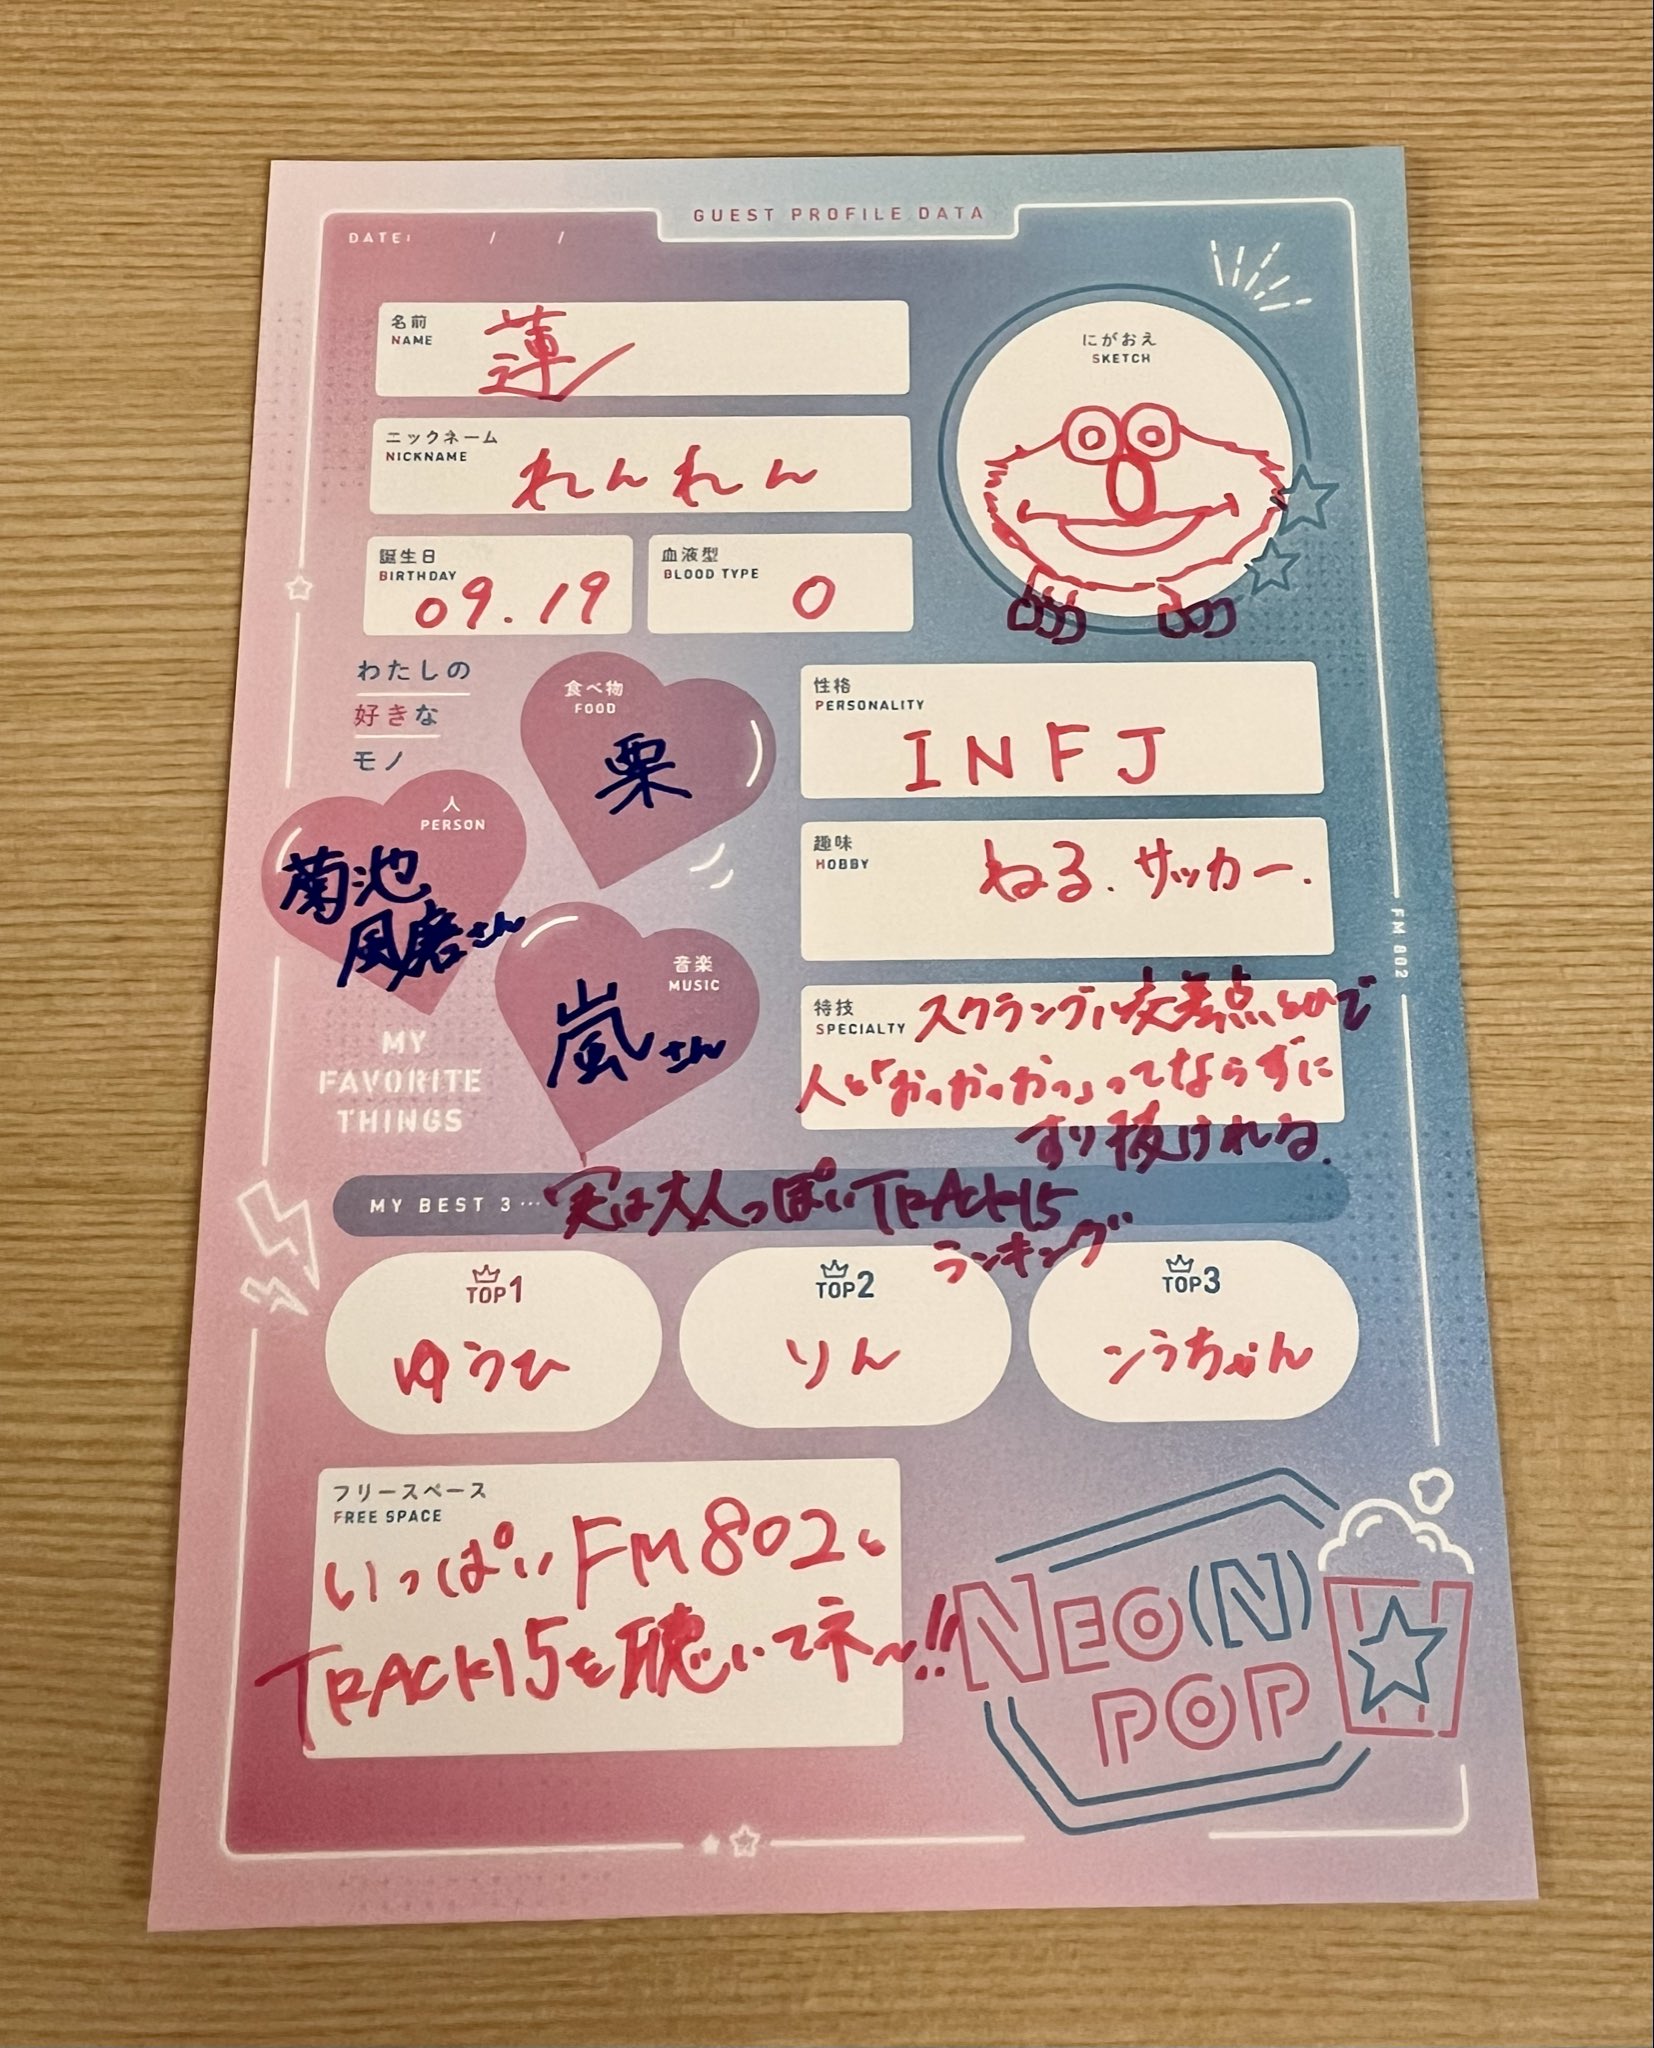 GUEST PROFILE DATA
DATE: / /
名前
NAME
蓮
にがおえ
SKETCH
ニックネーム
NICKNAME
れんれん
誕生日
BIRTHDAY
09.19
血液型
BLOOD TYPE
O
わたしの
好きな
モノ
食べ物
FOOD
栗
人
PERSON
菊池
風磨さん
音楽
MUSIC
嵐さん
MY
FAVORITE
THINGS
性格
PERSONALITY
INFJ
趣味
HOBBY
ねる.サッカー.
FM 802
特技
SPECIALTY
スクランブル交差点とかで
人と「おっおっおっ」ってならずに
すり抜けれる.
MY BEST 3…
実は大人っぽいTRACK15
ランキング
TOP1
ゆうひ
TOP2
りん
TOP3
こうちゃん
フリースペース
FREE SPACE
いっぱいFM802と
TRACK15を聴いてネ〜!!
NEO(N)
POP